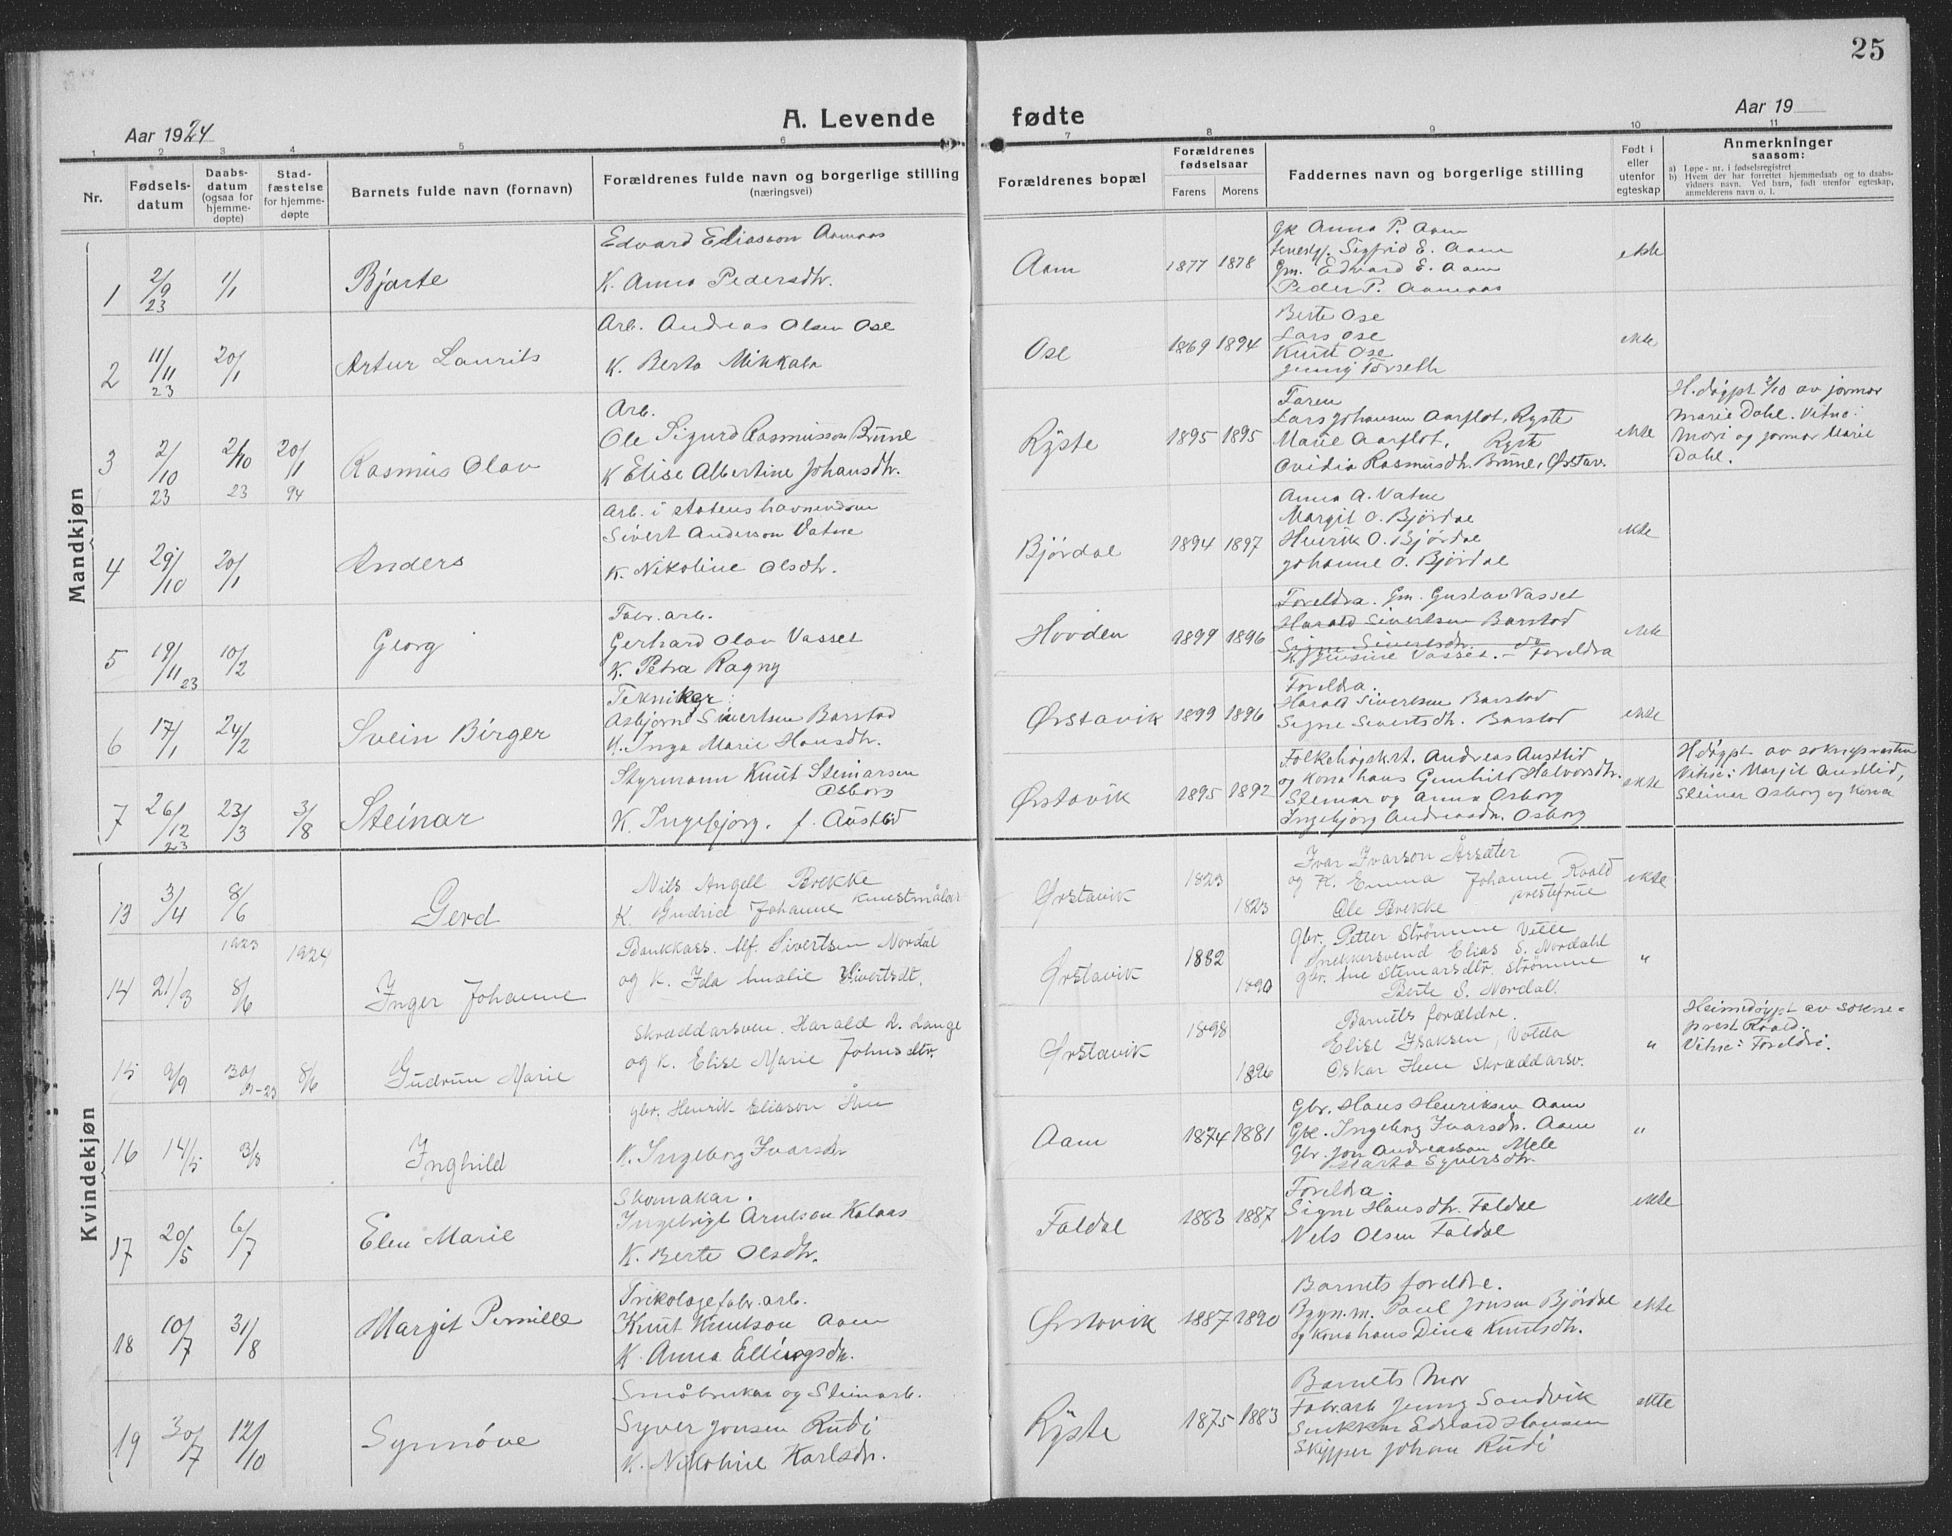 25
Aar 1924
A. Levende fødte
Aar 19
1 2 3 4 5 6 7 8 9 10 11
Nr.
Fødsels-
datum
Daabs-
datum
(ogsaa for
hjemme-
døpte)
Stad-
fæstelse
for hjemme-
døpte
Barnets fulde navn (fornavn)
Forældrenes fulde navn og borgerlige stilling
(næringsvei)
Forældrenes bopæl
Forældrenes
fødselsaar
Farens Morens
Faddernes navn og borgerlige stilling
Født i
eller
utenfor
egteskap
Anmerkninger
saasom:
a) Løpe-nr. i fødselsregistret
b) Hvem der har forrettet hjemmedaab og to daabs-
vidners navn. Ved barn, født utenfor egteskap,
anmelderens navn o. l.
Mandkjøn
1 2/9 23 1/1 Bjarte
Edvard Eliasson Aamaas
K. Anna Pedersdtr.
Aam 1877 1878
Gk Anna P. Aam
Sigfrid E. Aam
Gm. Edvard E. Aam
Peder P. Aamaas
ekte
2 11/11 23 20/1 Artur Laurits
Arb. Andreas Olsen Ose
K. Berta Mikkala
Ose 1869 1894
Berte Ose
Lars Ose
Knut Ose
Jenny Torseth
ekte
3 2/10 23 2/10 23 20/1 94 Rasmus Olav
Arb.
Ole Sigurd Rasmusson Brune
K Elise Albertine Johansdtr.
Ryste 1895 1895
Faren
Lars Johansen Aarflot, Ryste
Marie Aarflot, Ryste
Ovidia Rasmusdtr. Brune, Ørstav.
ekte
H.døypt 2/10 av jormor
Marie Dahl. Vitne:
Mori og jormor Marie
Dahl.
4 29/10 20/1 Anders
Arb. i statens havnevdsen
Sivert Anderson Vatne
K. Nikoline Olsdtr.
Bjørdal 1894 1897
Anna A. Vatne
Margit O. Bjørdal
Henrik O. Bjørdal
Johanne O. Bjørdal
ekte
5 19/11 23 10/2 Georg
Fabr. arb.
Gerhard Olav Vasset
K. Petra Ragny
Hovden 1899 1896
Foreldra. Gm. Gustav Vasset
Harald Sivertsen Barstad
Signe Sivertsdtr. do
Vasset. – Foreldra
ekte
6 17/1 24/2 Svein Birger
Tekniker
Asbjørn Sivertsen Barstad
K. Inga Marie Hansdtr.
Ørstavik 1899 1896
Foreldra.
Harald Sivertsen Barstad
Signe Sivertsdtr. Barstad
ekte
7 26/12 23 23/3 3/8 Steinar
Styrmann Knut Steinarsen
Osborg
K. Ingebjørg. f. Austlid
Ørstavik 1895 1892
Folkehøgsk.st. Andreas Austlid
og kona hans Gunhild Halvorsdtr.
Steinar og Anna Osborg
Ingebjørg Andreasdtr. Osborg
ekte
H.døypt av soknepresten
Vitne: Margit Austlid,
Steinar Osborg og Kona
Kvindekjøn
13 3/4 8/6 Gerd
Nils Angell Brekke
kunstmåler
K Gudrid Johanne
Ørstavik 1823 1823
Ivar Ivarson Årsæter
og K. Emma Johanne Raald
prestefrue
Ole Brekke
ekte
14 21/3 1923 8/6 1924 Inger Johanne
Bankkass. Alf. Sivertsen Nordal
og K. Ida Amalie Sivertsdt.
Ørstavik 1882 1890
Gbr. Petter Strømme Velle
Snekkersvend Elias S. Nordahl
gbr. Ane Steinarsdtr, Strømme
Berte S. Nordal.
"
15 9/9 30/9-23 8/6 Gudrun Marie
Skræddarsven. Harald A. Lange
og K. Elise Marie Johnsdtr.
Ørstavik 1898 1896
Barnets forældre.
Elise Isaksen, Volda
Oskar Hem Skræddarsv.
"
Heimedøypt av sokne-
prest Raald.
Vitne: Foreldri.
16 14/5 3/8 Inghild
gbr. Henrik Eliason Åm
K. Ingeborg Ivarsdtr
Aam 1874 1881
Gbr. Hans Henriksen Aam
Gbk. Ingeborg Ivarsdtr. Aam
Gbr. Jon Andreassen Mele
Marta Syversdtr.
"
17 20/5 6/7 Elen Marie
Skomakar.
Ingebrigt Arneson Kolaas
K. Berte Olsdtr.
Foldal 1883 1887
Foreldra.
Signe Hansdtr. Foldal
Nels Olsen Foldal
ekte
18 10/7 31/8 Margit Pernille
Trikotagefabr. arb.
Knut Knutson Aam
K. Anna Ellingsdtr.
Ørstavik 1887 1890
Barnets foreldre.
Bygn.m. Paul Jonsen Bjørdal
og kona hans Dina Knutsdtr.
ekte
19 30/7 12/10 Synnøve
Småbrukar og Steinarb.
Syver Jonsen Rudi
K. Nikoline Karlsdtr.
Ryste 1875 1883
Barnets Mor
Fabr.arb Jenny Sandvik
Snikkar Edvard Hansen
Skipper Johan Rudi
ekte